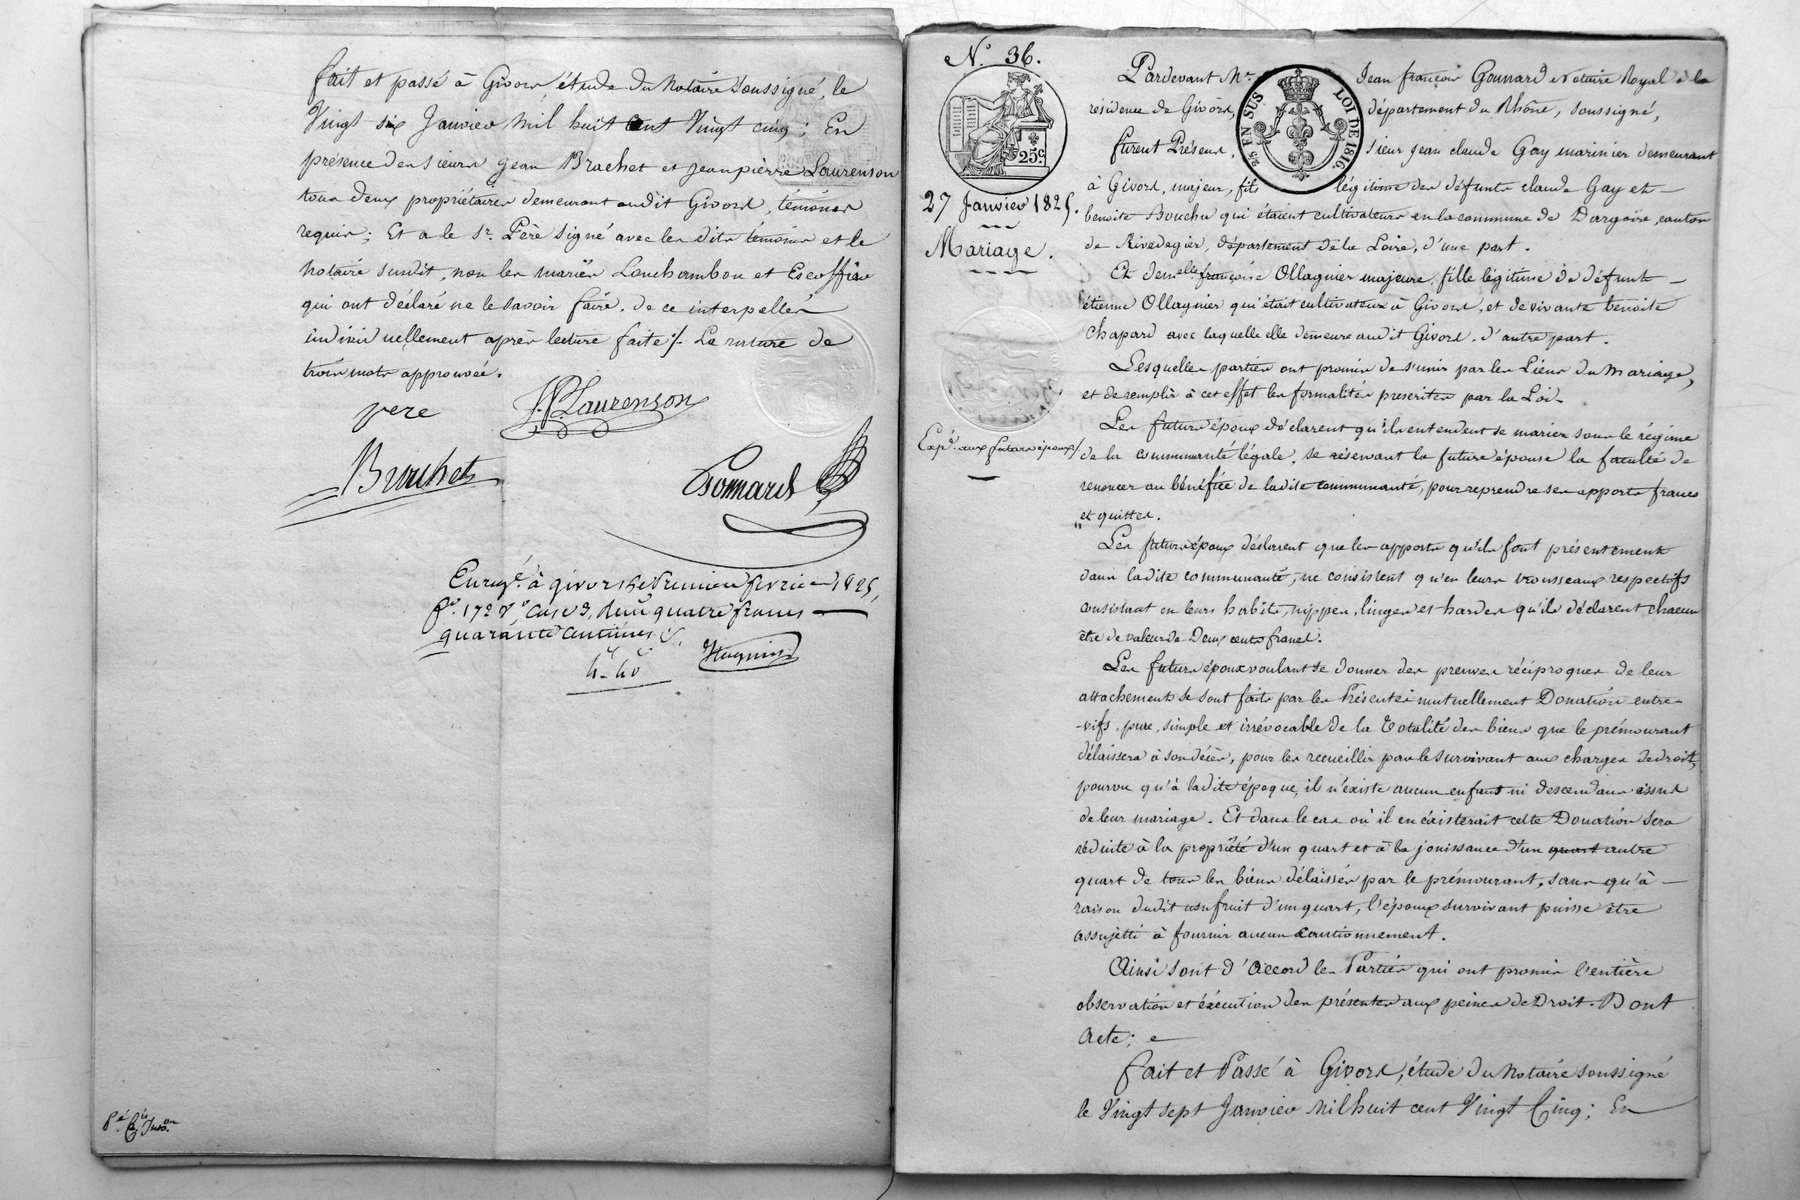 fait et passé à Givors, étude du Notaire soussigné, le
Vingt six Janvier Mil huit cent Vingt cinq; En
présence des sieurs Jean Brachet et Jean pierre Laurenson
tous deux propriétaires demeurant audit Givors, témoins
requis; Et a le Sr. Père signé avec les dits témoins et le
Notaire susdit, non les mariés Louchambon et Escoffier
qui ont déclaré ne le savoir faire. de ce interpellés
individuellement après lecture faite ./. La rature de
trois mots approuvée.
pere
J.P. Laurenson
Brachet
Gonnard
Enregé. à givors le Premier fevrier 1825,
fo. 172 vo. case 9, Reçu quatre francs
quarante centimes
4f 40c
N.o 36.
27 Janvier 1825.
Mariage.
25c
25c EN SUS
LOI DE 1816.
Expé. aux futurs époux
Pardevant Me. Jean françois Gonnard Notaire Royal à la
résidence de Givors, département du Rhône, soussigné,
furent Présens, sieur Jean claude Gay marinier demeurant
à Givors, majeur, fils légitime des défunts claude Gay et
benoite Bouchu qui étaient cultivateurs en la commune de Dargoire, canton
de Rivedegier, département de la Loire, d'une part.
Et demelle françoise Ollagnier majeure, fille légitime de défunt
étienne Ollagnier qui était cultivateur à Givors, et de vivante benoite
Chapard avec laquelle elle demeure audit Givors, d'autre part.
Lesquelles parties ont promis de s'unir par les Liens du Mariage,
et de remplir à cet effet les formalités prescrites par la Loi.
Les futurs époux déclarent qu'ils entendent se marier sous le régime
de la communauté légale, se réservant la future épouse la faculté de
renoncer au bénéfice de ladite communauté, pour reprendre ses apports francs
et quittes.
Les futurs époux déclarent que les apports qu'ils font présentement
dans ladite communauté, ne consistent qu'en leurs trousseaux respectifs
consistant en leurs habits, nippes, linges et hardes qu'ils déclarent chacun
être de valeur de Deux cents francs.
Les futurs époux voulant se donner des preuves réciproques de leur
attachement se sont faits par les Présentes mutuellement Donation entre-
-vifs, pure, simple et irrévocable de la Totalité des biens que le prémourant
délaissera à son décès, pour les recueillir par le survivant aux charges de droit,
pourvu qu'à ladite époque, il n'existe aucun enfant ni descendans issus
de leur mariage. Et dans le cas où il en éxisterait cette Donation sera
réduite à la propriété d'un quart et à la jouissance d'un quart autre
quart de tous les biens délaissés par le prémourant, sans qu'à
raison dudit usufruit d'un quart, l'époux survivant puisse être
assujetti à fournir aucun cautionnement.
Ainsi sont d'accord les Parties qui ont promis l'entière
observation et éxécution des présentes aux peines de Droit. Dont
Acte;
fait et Passé à Givors, étude du Notaire soussigné
le Vingt sept Janvier Mil huit cent Vingt Cinq; En